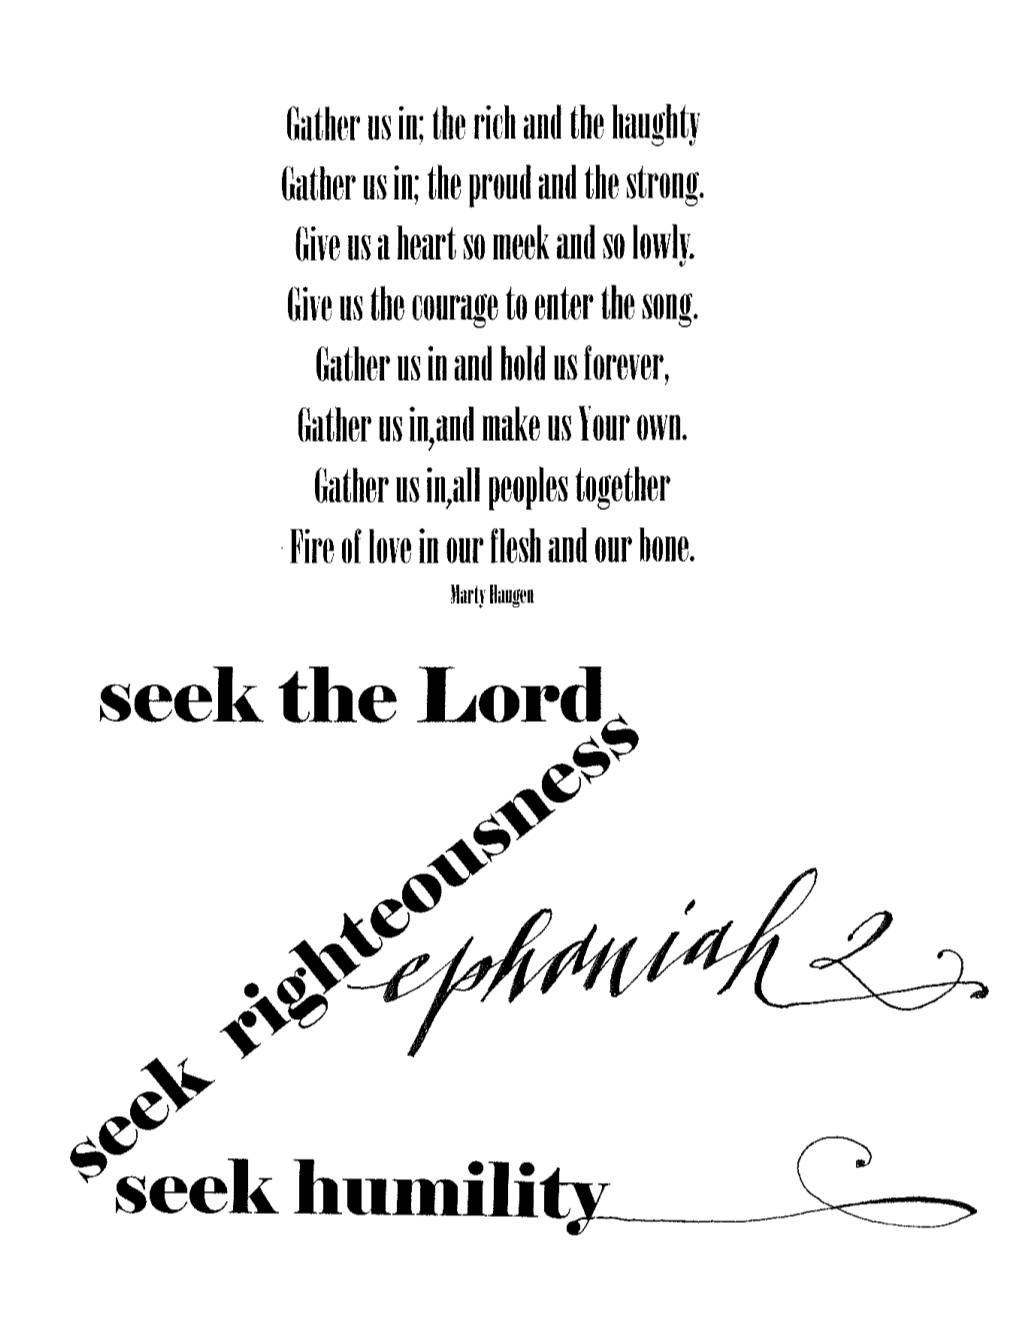 Gather us in; the rich and the haughty
Gather us in; the proud and the strong.
Give us a heart so meek and so lowly.
Give us the courage to enter the song.
Gather us in and hold us forever,
Gather us in,and make us Your own.
Gather us in,all peoples together
Fire of love in our flesh and our bone.
Marty Haugen
seek the Lord
seek righteousness
ephaniah 2
seek humility